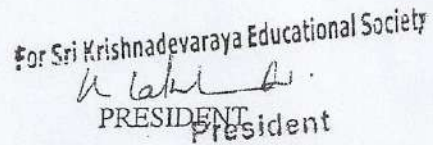 For Sri Krishnadevaraya Educational Society
PRESIDENT
President